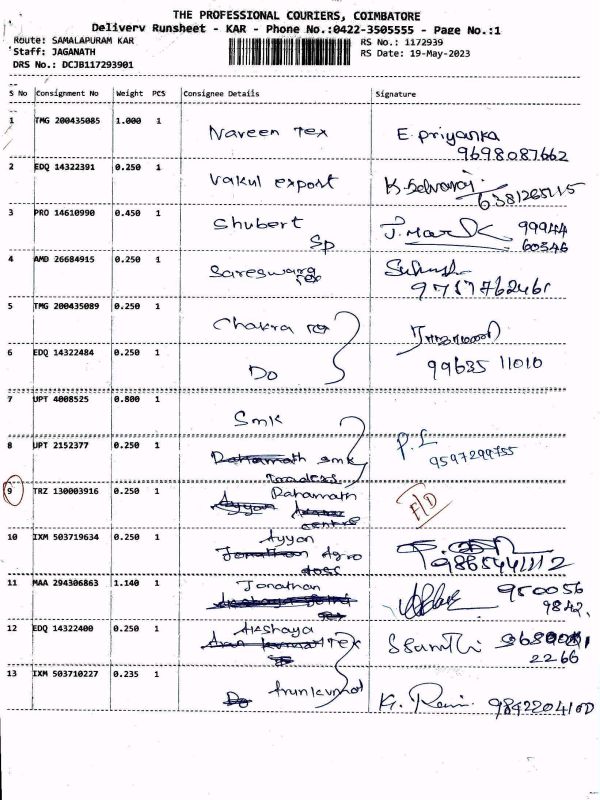 THE PROFESSIONAL COURIERS, COIMBATORE
Delivery Runsheet - KAR - Phone No.:0422-3505555 - Page No.:1
Route: SAMALAPURAM KAR
RS No.: 1172939
Staff: JAGANATH
RS Date: 19-May-2023
DRS No.: DCJB117293901
S No Consignment No Weight PCS Consignee Details Signature
1 TMG 200435085 1.000 1 Naveen Tex E. Priyanka
9698087662
2 EDQ 14322391 0.250 1 Vakul export K. Selvaraj
3 PRO 14610990 0.450 1 Shubert J. Mark 99944
Sp 60346
4 AMD 26684915 0.250 1
5 TMG 200435089 0.250 1 Chakra Tex
6 EDQ 14322484 0.250 1 Do 99635 11010
7 UPT 4008525 0.800 1 Smk
8 UPT 2152377 0.250 1 Rahamath Smk P. L
Traders 9597299755
9 TRZ 130003916 0.250 1 Rahamath F/D
Ayyan
Centre
10 IXM 503719634 0.250 1 Ayyan
Jonathan Agro 9865441112
11 MAA 294306863 1.140 1 Jonathan 950056
9842
12 EDQ 14322400 0.250 1 Akshaya
Tex 2266
13 IXM 503710227 0.235 1 Arunkumar
Do